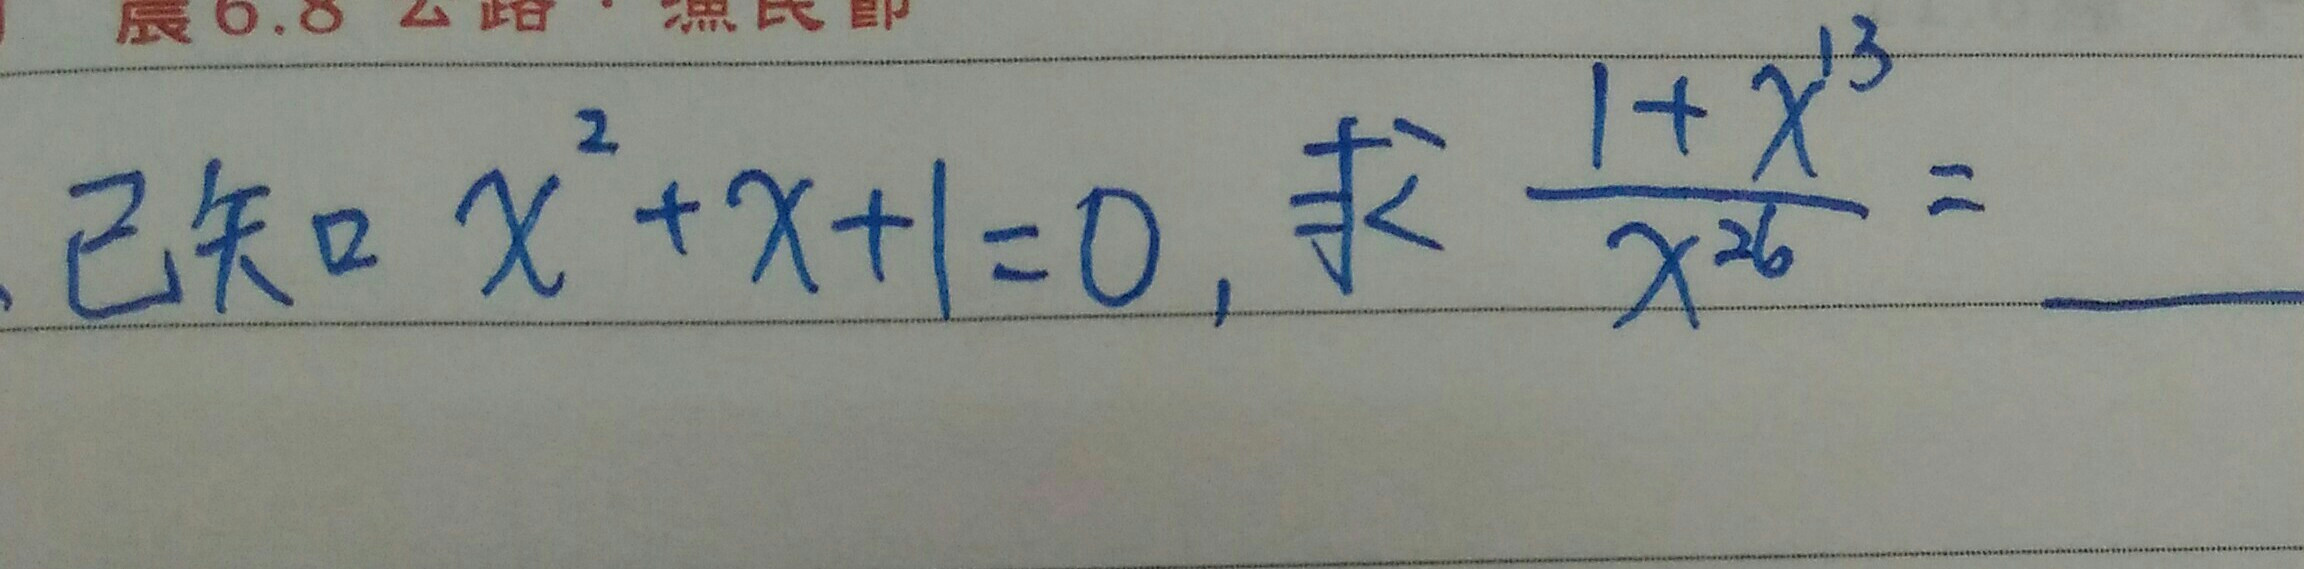 農6.8 公路·漁民節
、已知 x²+x+1=0, 求 (1+x¹³)/x²⁶ = ____